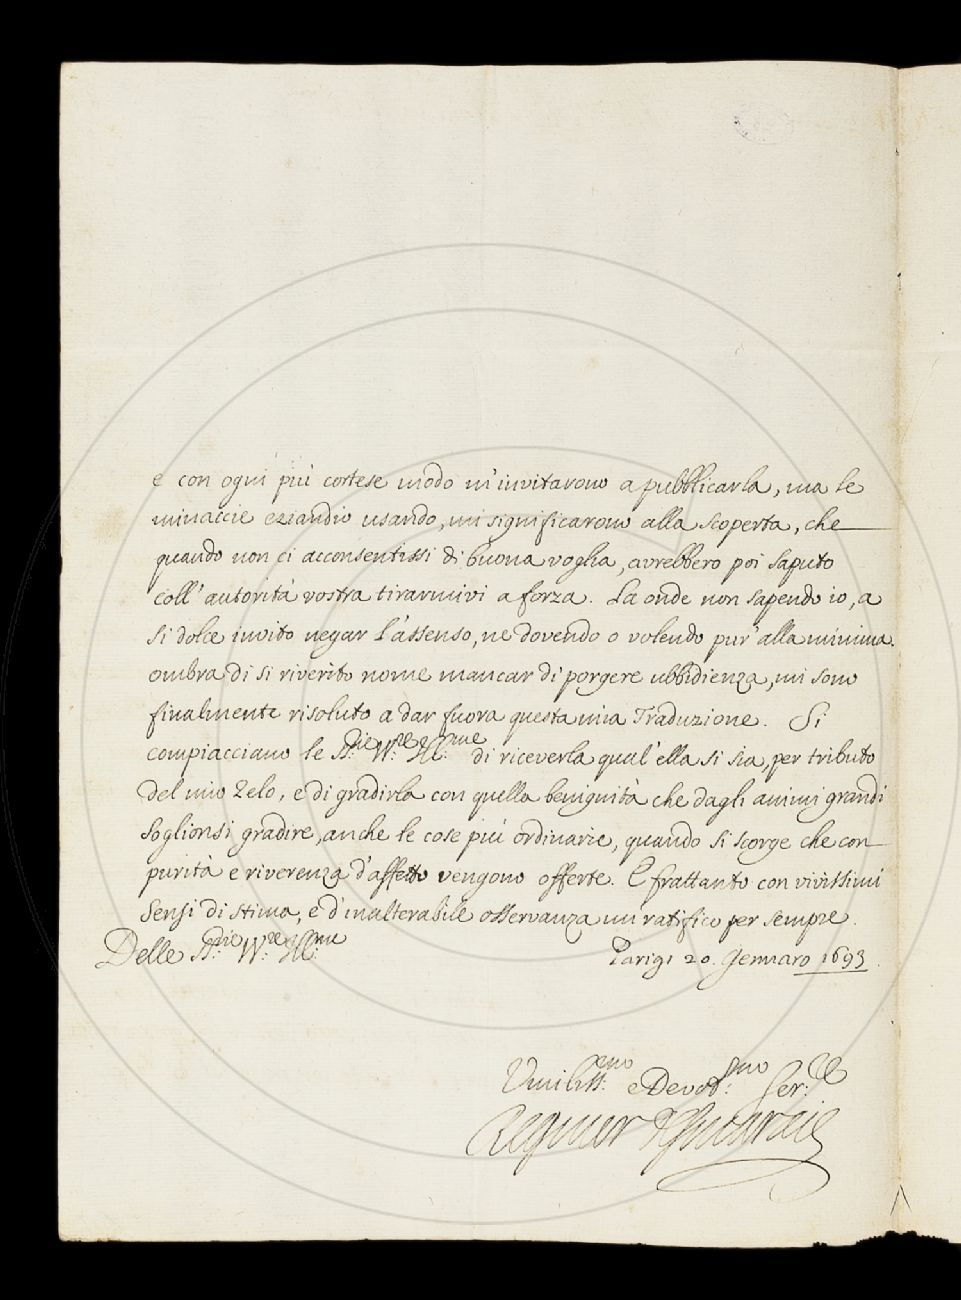 e con ogni più cortese modo m'invitarono a pubblicarla, ma le
minaccie eziandio usando, mi significarono alla scoperta, che
quando non ci acconsentissi di buona voglia, avrebbero poi saputo
coll' autorità vostra tirarmivi a forza. La onde non sapendo io, a
si dolce invito negar l'assenso, ne dovendo o volendo pur' alla minima
ombra di si riverito nome mancar di porgere ubbidienza, mi sono
finalmente risoluto a dar fuora questa mia Traduzione. Si
compiacciano le S.rie V.re Ill.me di riceverla qual' ella si sia, per tributo
del mio Zelo, e di gradirla con quella benignità che dagli animi grandi
soglionsi gradire, anche le cose più ordinarie, quando si scorge che con
purità e riverenza d'affetto vengono offerte. E frattanto con vivissimi
sensi di stima, e d'inalterabile osservanza mi ratifico per sempre.
Delle S.rie V.re Ill.me
Parigi 20. Gennaro 1693.
Umiliss.mo e Devot.mo Ser.re
Regnier Desmarais